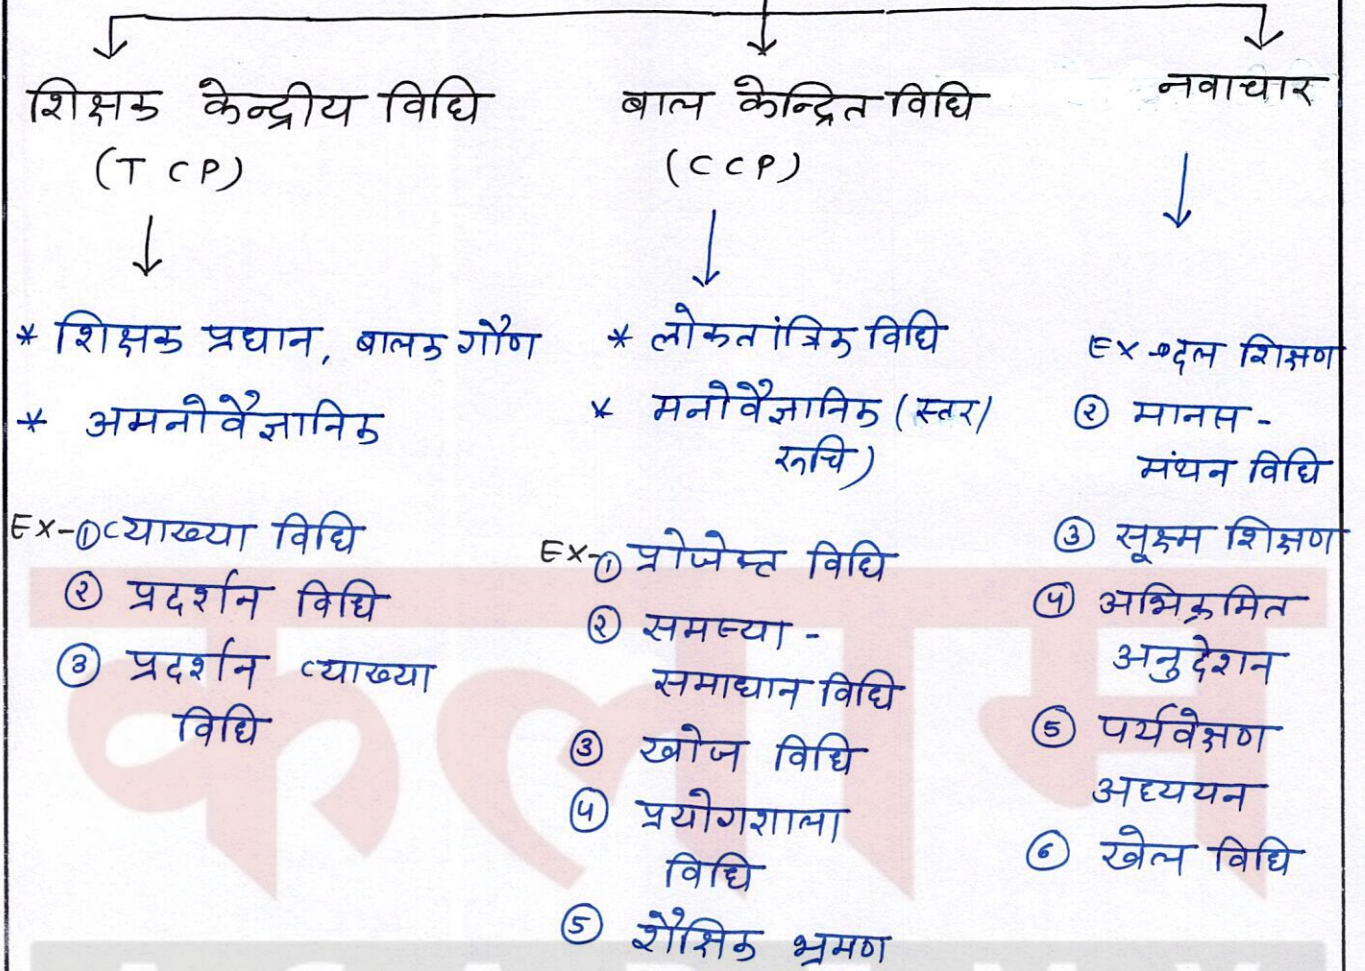 शिक्षक केन्द्रीय विधि
(T C P)
* शिक्षक प्रधान, बालक गौण
* अमनोवैज्ञानिक
Ex-① व्याख्या विधि
② प्रदर्शन विधि
③ प्रदर्शन व्याख्या
विधि
बाल केन्द्रित विधि
(C C P)
* लोकतांत्रिक विधि
* मनोवैज्ञानिक (स्तर/
रूचि)
Ex-① प्रोजेक्ट विधि
② समस्या -
समाधान विधि
③ खोज विधि
④ प्रयोगशाला
विधि
⑤ शैक्षिक भ्रमण
नवाचार
Ex → दल शिक्षण
② मानस -
मंथन विधि
③ सूक्ष्म शिक्षण
④ अभिक्रमित
अनुदेशन
⑤ पर्यवेक्षण
अध्ययन
⑥ खेल विधि
कलाम